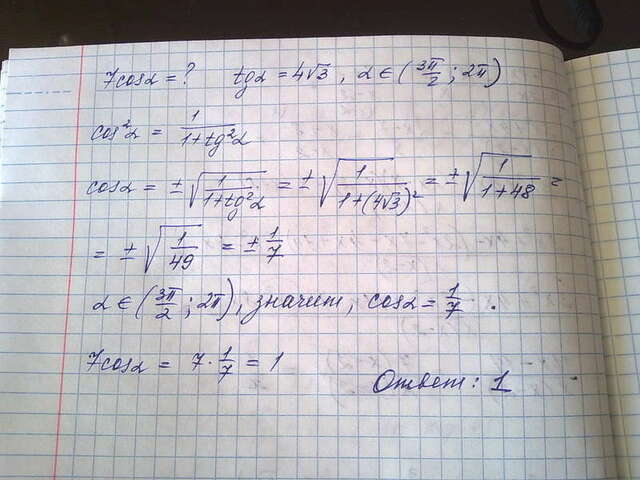 7cosα = ? tgα = 4√3, α ∈ (3π/2; 2π)
cos²α = 1/(1+tg²α)
cosα = ±√(1/(1+tg²α)) = ±√(1/(1+(4√3)²)) = ±√(1/(1+48)) =
= ±√(1/49) = ±1/7
α ∈ (3π/2; 2π), значит, cosα = 1/7.
7cosα = 7·1/7 = 1
Ответ: 1